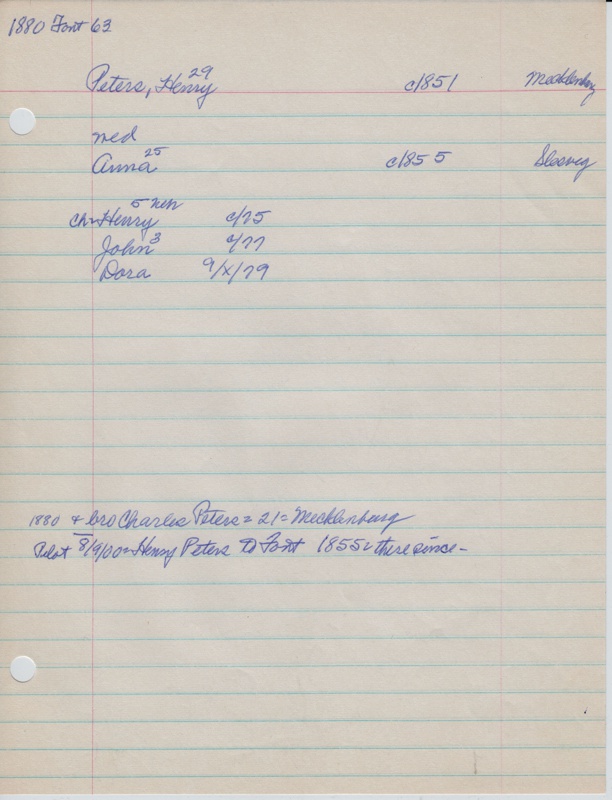 1880 Font 63
Peters, Henry 29 c/1851 Mecklenburg
med
Anna 25 c/1855
5
ch= Henry c/75
John 3 c/77
Dora 9/x/79
1880 + bro Charles Peters = 21 = Mecklenburg
Pilot 8/9/00= Henry Peters to Font 1855 & there since -